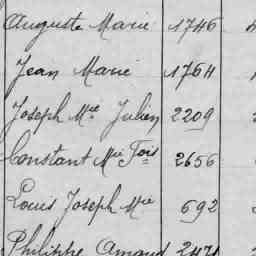 Auguste Marie 1746
Jean Marie 1764
Joseph Mie Julien 2209
Constant Mie Fois 2656
Louis Joseph Mie 692
Philippe Amand 2471